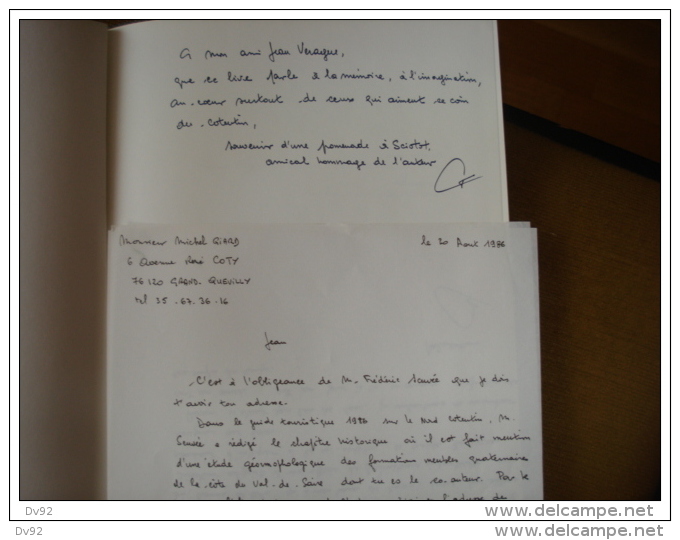 A mon ami Jean Veraque,
que ce livre parle à la mémoire, à l'imagination,
au coeur surtout de ceux qui aiment ce coin
du Cotentin,
souvenir d'une promenade à Sciotot,
amical hommage de l'auteur
Monsieur Michel GIARD
6 Avenue René COTY
76120 GRAND. QUEVILLY
tel 35.67.36.16
le 20 Aout 1986
Jean
C'est à l'obligeance de M. Frédéric que je dois
d'avoir ton adresse.
Dans le guide touristique 1986 sur le Nord Cotentin, M.
a rédigé le chapitre historique où il est fait mention
d'une étude géomophologique des formation meubles quaternaires
de la côte du Val de Saire dont tu es le co.auteur. Par le
l'adresse de
Dv92
Dv92
www.delcampe.net
www.delcampe.net